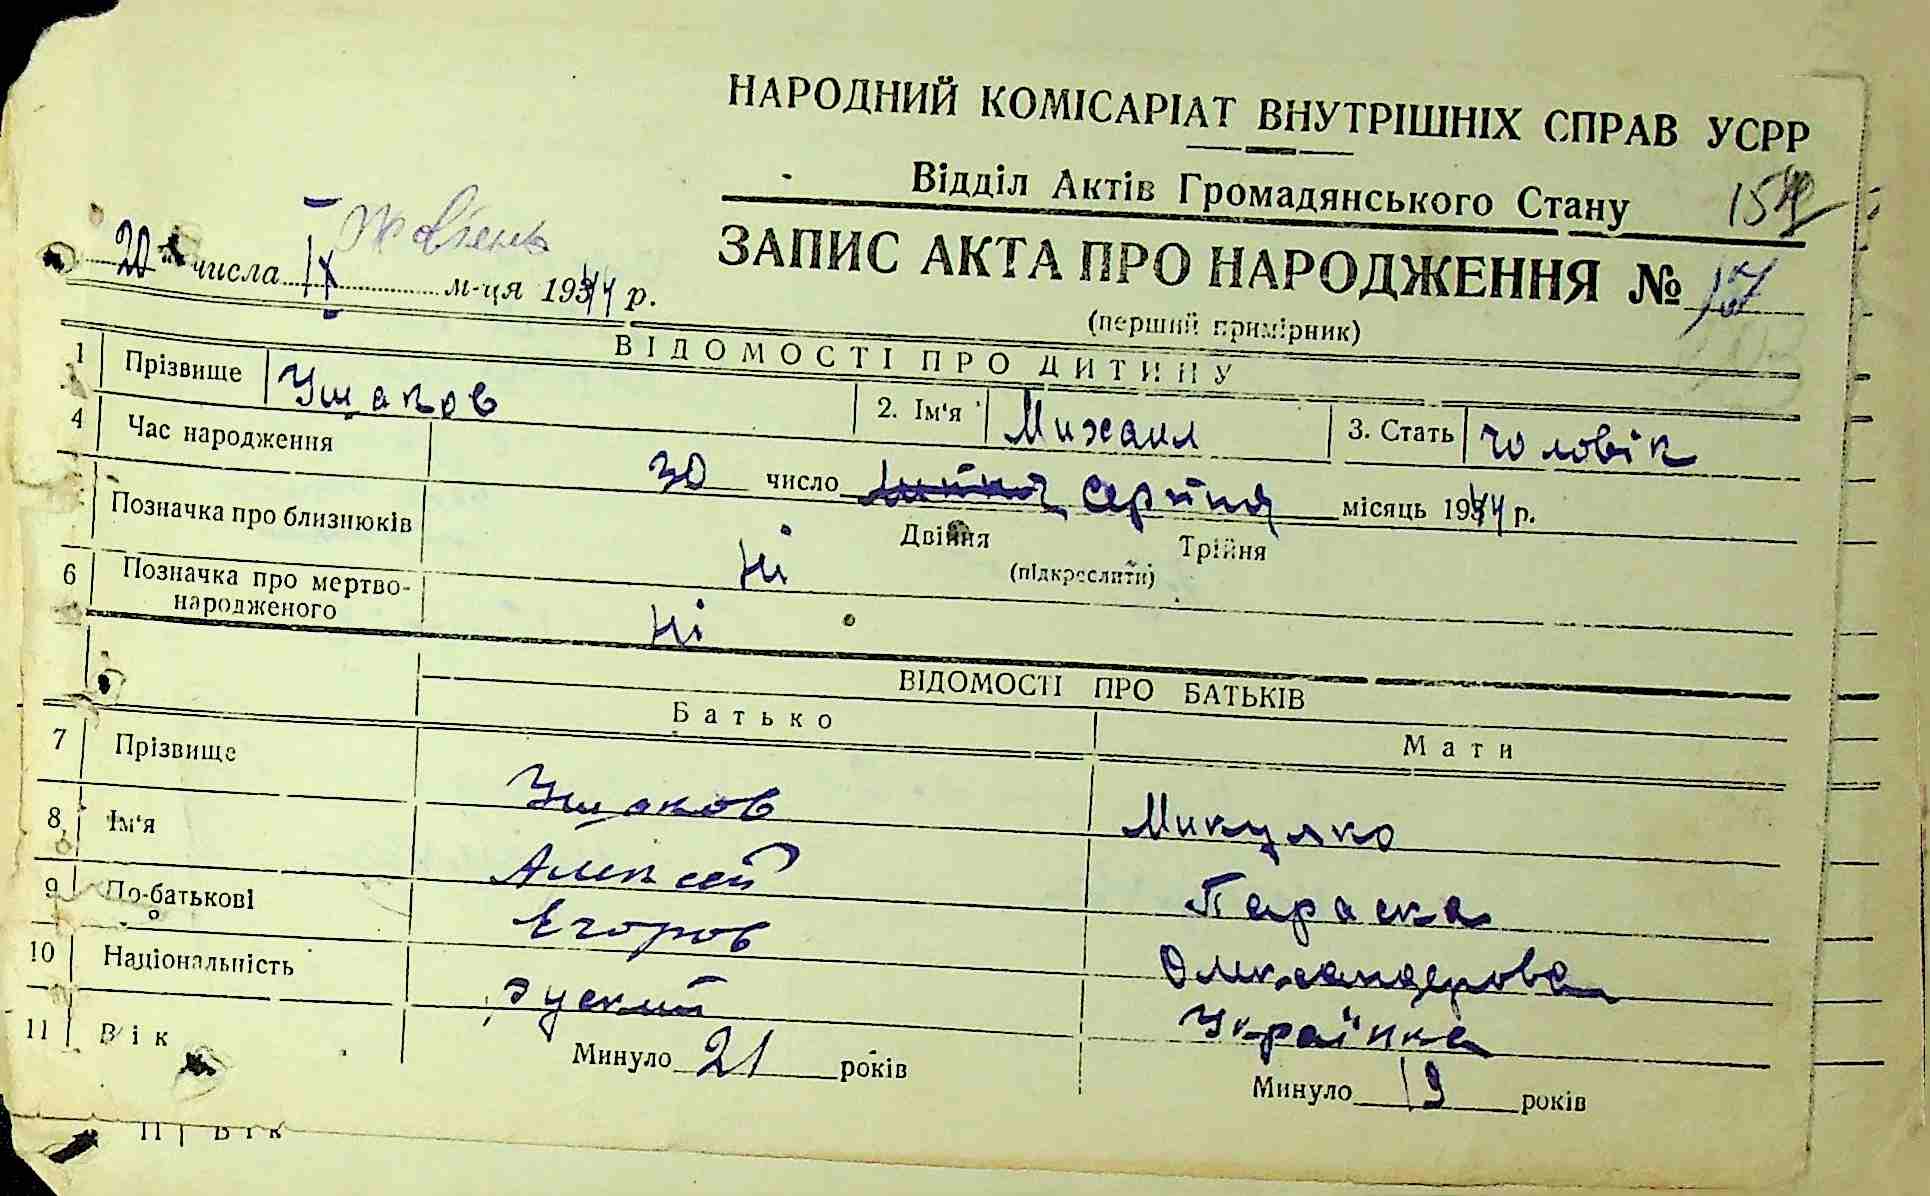 НАРОДНИЙ КОМІСАРІАТ ВНУТРІШНІХ СПРАВ УСРР
Відділ Актів Громадянського Стану
ЗАПИС АКТА ПРО НАРОДЖЕННЯ № 17
Жовтень
20 числа IX м-ця 1944 р.
(перший примірник)
ВІДОМОСТІ ПРО ДИТИНУ
1 Прізвище Ушаков 2. Ім'я Михаил 3. Стать чоловік
4 Час народження 30 число серпня місяць 1944 р.
Позначка про близнюків Ні Двійня Трійня
(підкреслити)
6 Позначка про мертво-
народженого Ні
ВІДОМОСТІ ПРО БАТЬКІВ
Батько Мати
7 Прізвище Ушаков Микулко
8 Ім'я Алексей Параска
9 По-батькові Егоров Олександрова
10 Національність руский Українка
11 Вік Минуло 21 років Минуло 19 років
11 Вік